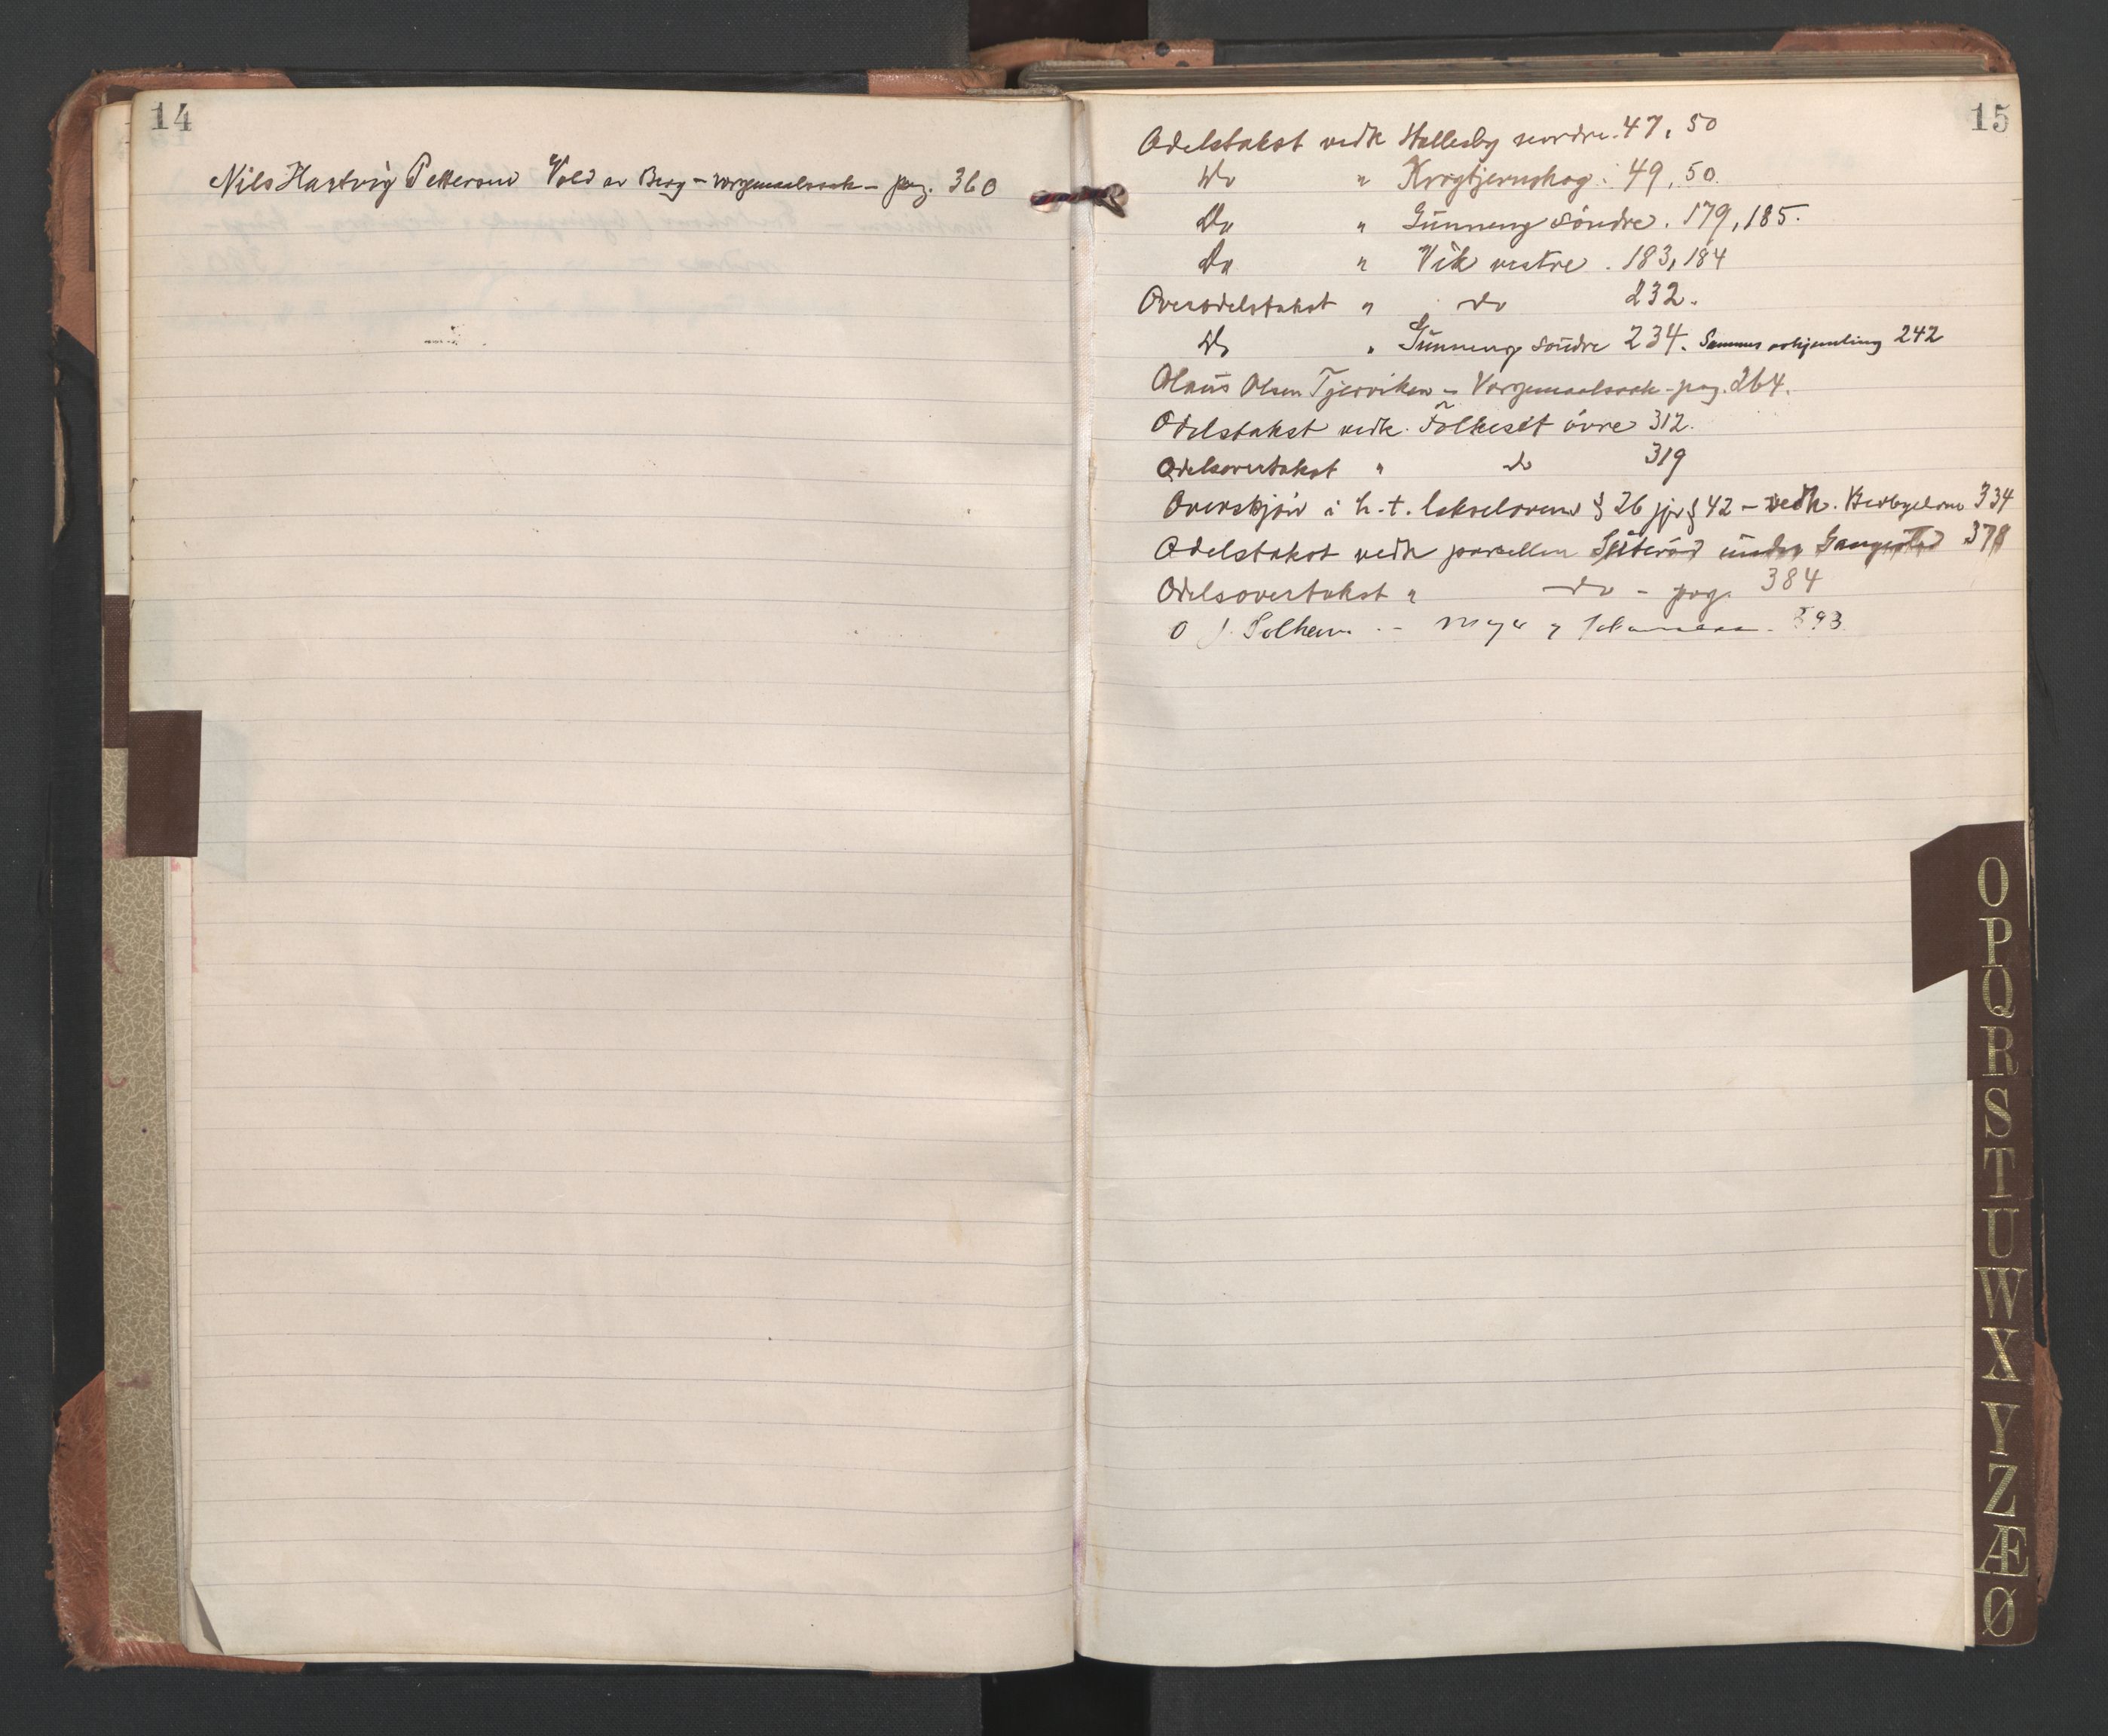 14
Nils Hartvig Petterson Vold av Berg – vergemaalssak – pag. 360
15
Odelstakst vedk Hallesby nordre. 47, 50
Do " Krogtjernshog : 49, 50.
Do " Günneng söndre. 179, 185.
Do " Vik vestre. 183, 184
Overodelstakst " do 232.
Do " Günneng söndre 234. Sammes avhjemling 242
Olaüs Olsen Tjerviken – Vergemaalssak – pag. 264.
Odelstakst vedk. Folkeset övre 312.
Odelsovertakst " do 319
Overskjön i h.t. lakseloven § 26 jfr § 42 – vedk. 334
Odelstakst vedk parsellen ünder 378
Odelsovertakst " do – pag. 384
O J. Solheim. – 393.
O
P
Q
R
S
T
U
W
X
Y
Z
Æ
Ø